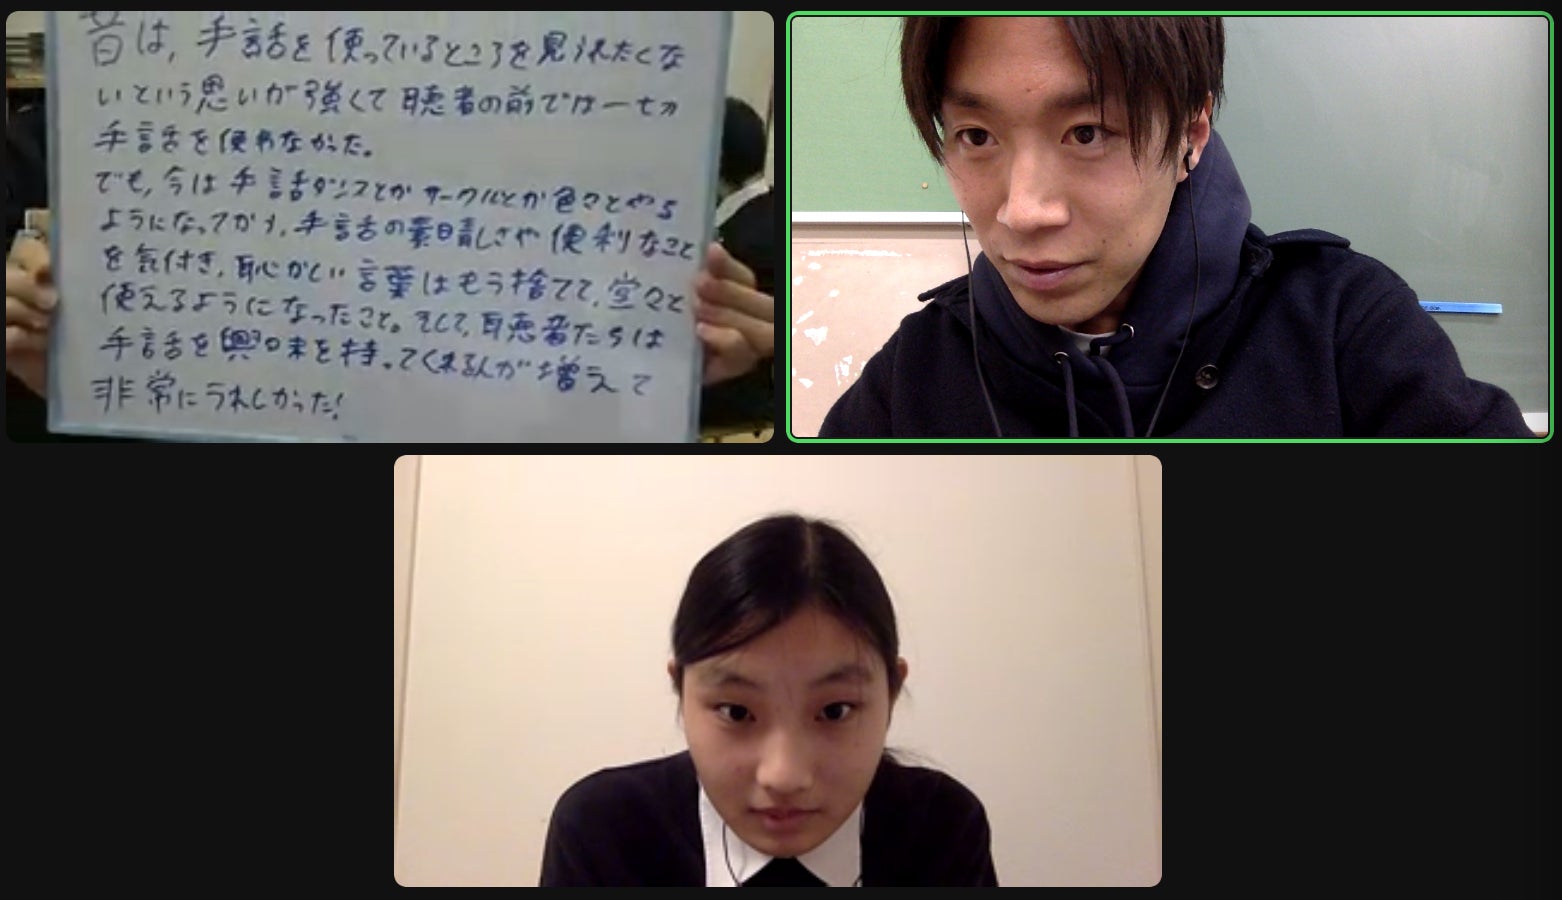 昔は，手話を使っているところを見られたくな
いという思いが強くて聴者の前では一切
手話を使わなかった。
でも，今は手話ダンスとかサークルとか色々とやる
ようになってから，手話の素晴しさや便利なこと
を気付き，恥かしい言葉はもう捨てて，堂々と
使えるようになったこと。そして，聴者たちは
手話を興味を持ってくれるんが増えて
非常にうれしかった！